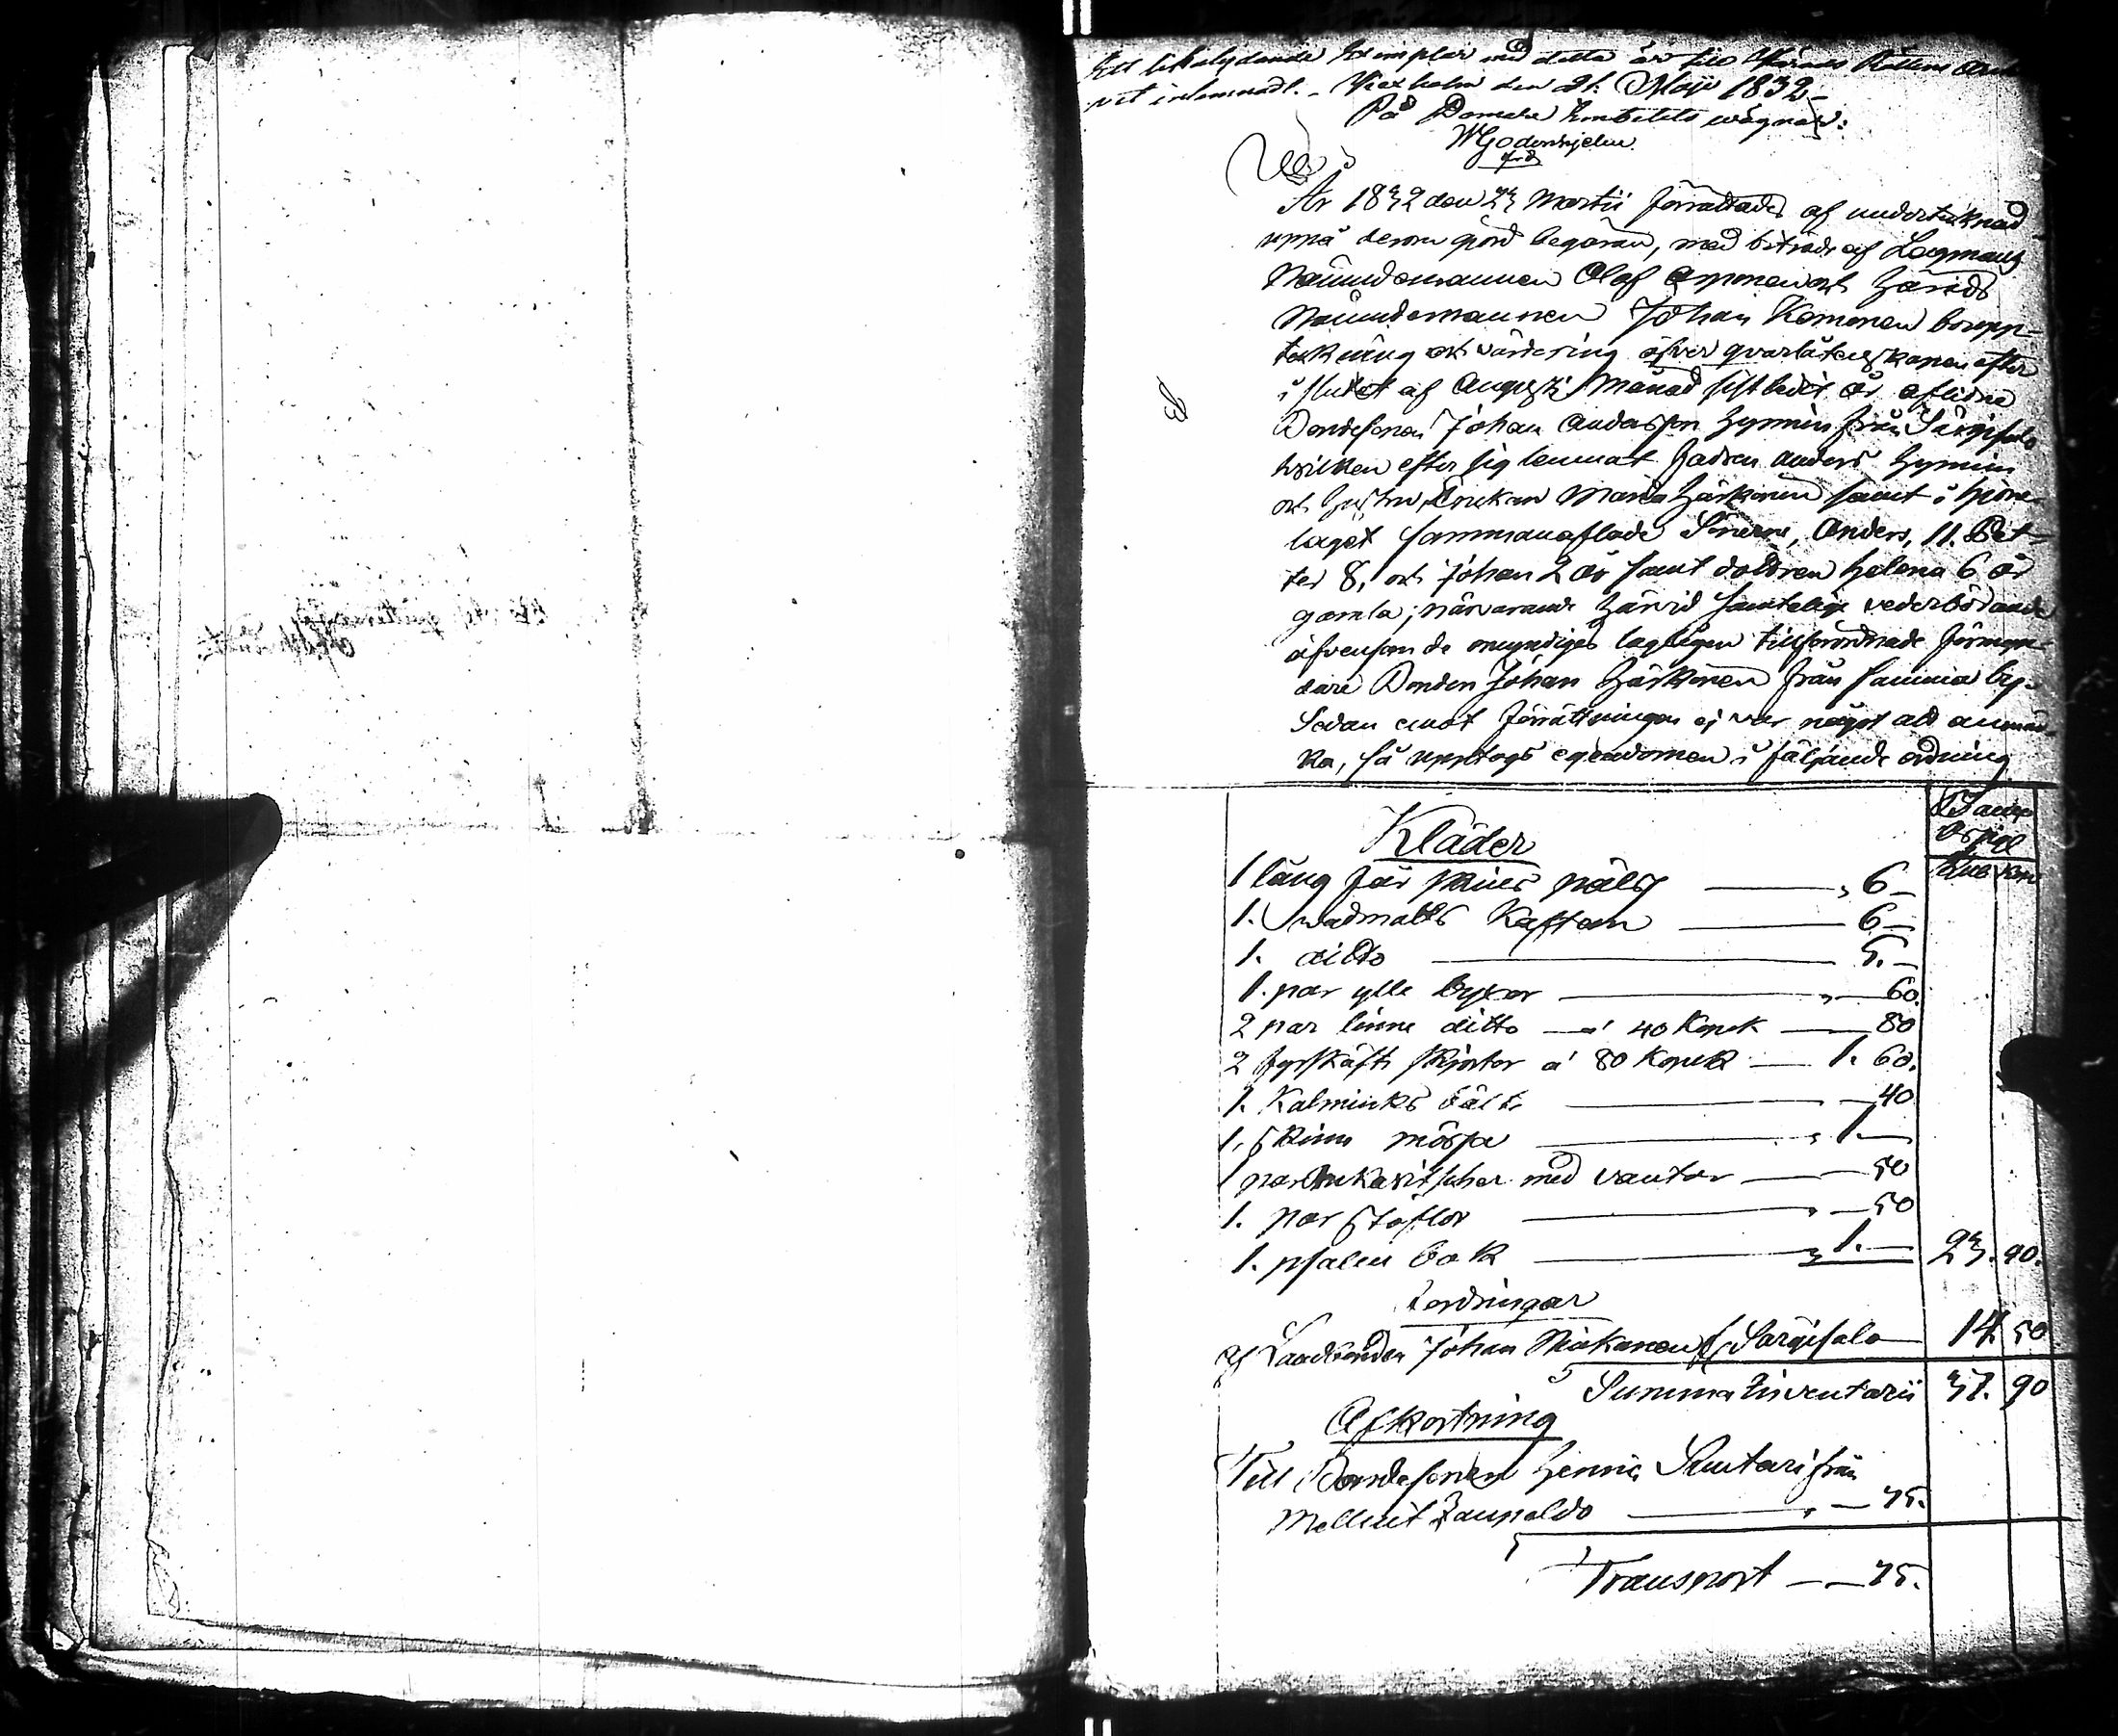 Ett lika lydande Exemplar med detta är till Härads Rättens Archi
vet inlemnadt. Kexholm den 21. Maji 1832
På Domare Embetets wägnar:
W Godenhjelm
År 1832 den 23 Martii förrättades af undertecknad
uppå derom gjord begäran, med biträde af Lagmans
Nämndemannen Olof Apponen och Härads
Nämndemannen Johan Komonen boupp-
teckning och värdering öfver qvarlåtenskapen efter
i slutet af Augusti Månad sistledit år aflidne
Bondesonen Johan Andersson Hynnin från Särgisalo
hvilken efter sig lemnat fadren Anders Hynnin
och hustru, Enckan Maria Härkönen samt i hjone-
laget sammanaflade Sönerne, Anders, 11. Pet-
ter 8, och Johan 2 år samt dottren Helena 6 år
gamla; närvarande härvid samtelige vederbörande
äfvensom de omyndiges lagligen tillförordnade förmyn-
dare Bonden Johan Härkönen från samma by.
Sedan emot förrättningen ej var något att anmär-
ka, så upptogs egendomen i följande ordning
Banco
Assign
Rub Kop
Kläder
1 lång får skins päls — 6 —
1. wadmals Kaftan — 6 —
1. ditto — 5. —
1. par ylle byxor — 60.
2 par linne ditto — á 40 Kopek — 80
2 fyrskäfts skjortor á 80 Kopek — 1. 60.
1. Kalminks bält — 40
1. skinn mössa — 1. —
1 par med vantar — 50
1. par stöflor — 50
1. psalm bok — 1. — 23. 40.
Fordringar
af Landbonden Johan Miskanen f. Särgisalo — 14 50
Summa Inventarii 37. 90
Afkortning
Till Bondesonen Henric Suutari från
— 75.
Transport — 75.